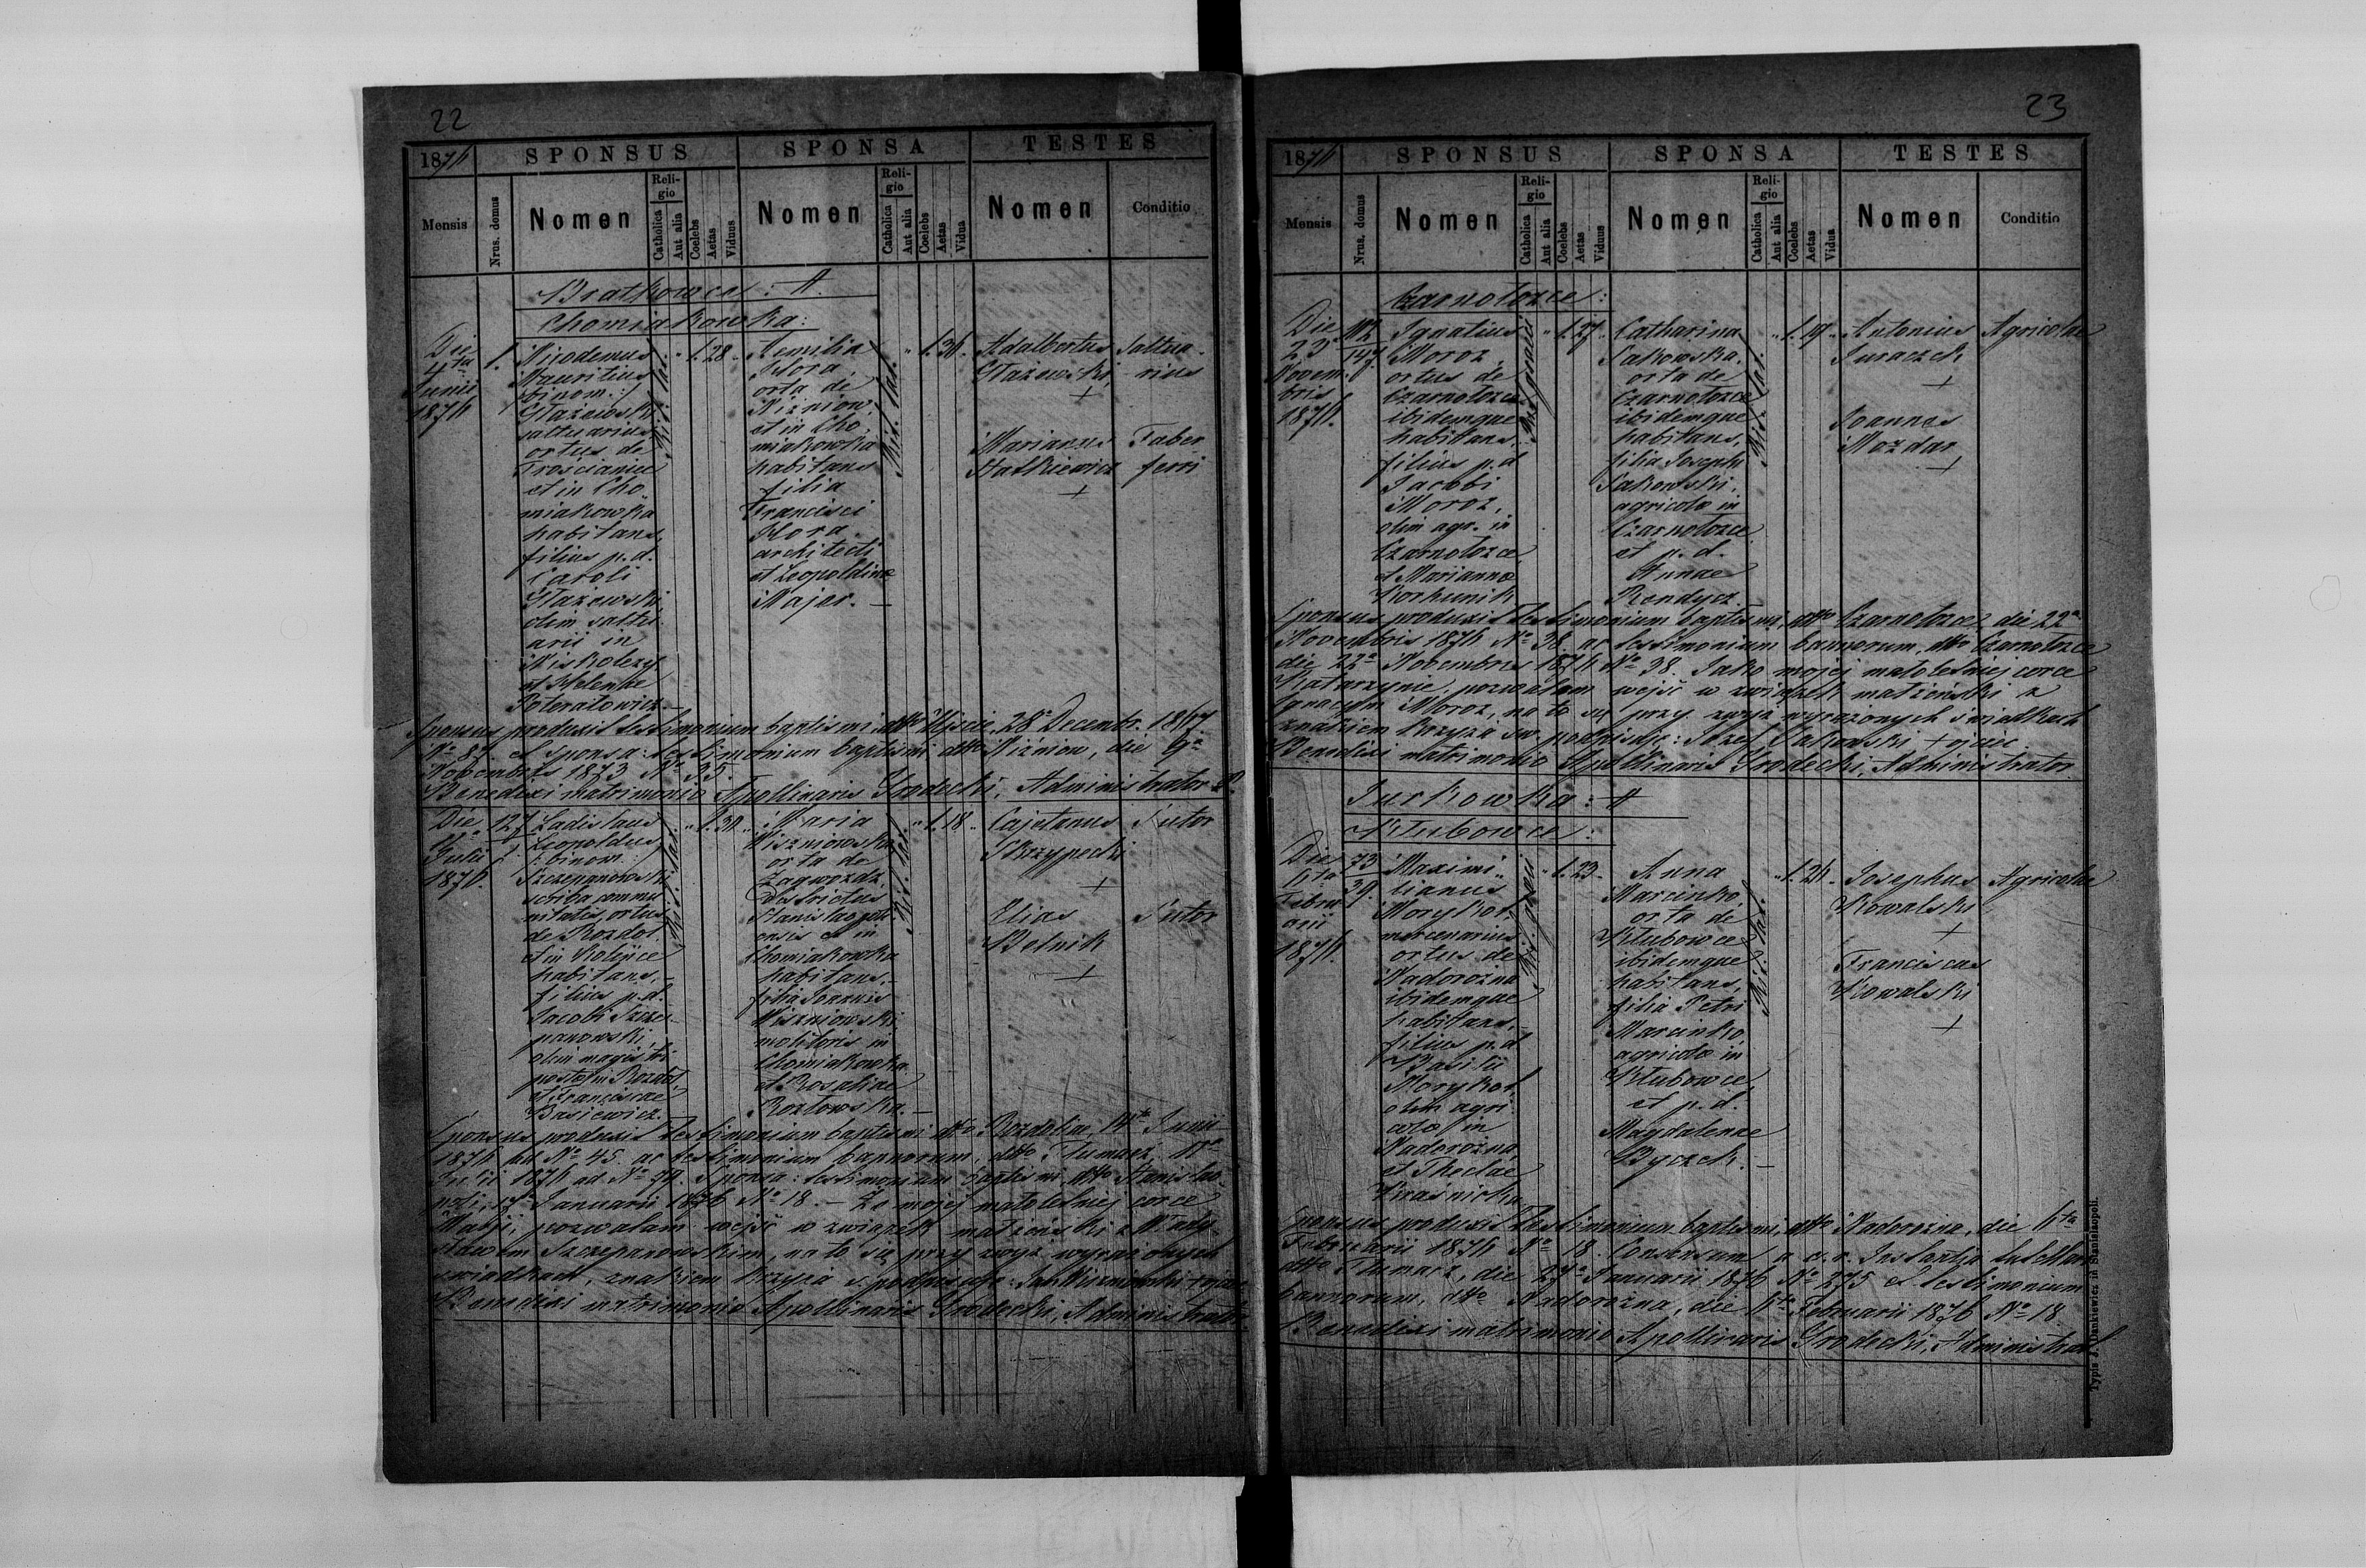 22
1876 SPONSUS SPONSA TESTES
Mensis Nrus. domus Nomen Religio Catholica Aut alia Coelebs Aetas Viduus Nomen Religio Catholica Aut alia Coelebs Aetas Vidua Nomen Conditio
Bratkowce: #
Chomiakowka:
Die
4ta
Junii
1876
1.
Nicodemus
Mauritius
binom:/
Głażewski
saltuarius
ortus de
Trościaniec
et in Cho-
miakowka
habitans,
filius p. d.
Caroli
Głażewski
olim saltu-
arii in
et Helenae
Rit. lat.
" 1. 28 "
Aemilia
Hora,
orta de
Niżniow
et in Cho-
miakowka
habitans
filia
Francisci
Hora
architecti
et Leopoldine
Majer. –
Rit. lat.
" 1. 26 "
Adalbertus
Głażewski,
+
Marianus
Hatkiewicz
+
Saltua-
rius
Faber
ferri
Sponsus produxit testimonium baptismi, dtto Ujscie, 28 Decembr. 1867.
et sponsa: testimonium baptismi dtto Niżniow, die 9a
Novembris 1873 No 35.
Benedixi matrimonio Apollinaris Grodecki, Administrator
Die
Julii
1876.
127
Ladislaus
Leopoldus
/: binom:/
Szczepanowski
scriba commu-
nitatis, ortus
de Rozdol
et in
habitans,
filius p. d.
Jacobi Szcze-
panowski,
olim magistri
postae in Rozdol,
et Franciscae
Basiewicz.
Rit. lat.
" 1. 30 "
Maria
Wiszniowska
orta de
Zagwozdz,
Districtus
Stanislaopoli-
ensis et in
Chomiakowka
habitans,
filia Joannis
Wiszniowski
molitoris in
Chomiakowka
et Rosaliae
Kozłowska. –
Rit. lat.
" 1. 18 "
Cajetanus
Skrzypecki
+
Elias
Melnik
+
Sutor
Sutor
Sponsus produxit testimonium baptismi dtto Junii
1876 ad No 45. ac testimonium bannorum, dtto Tłumacz,
Julii 1876 ad No Sponsa: testimonium baptismi dtto Stanislao-
poli, 17 Januarii 1876 No 18. – Ja mojej małoletniej corce
Maryi, pozwalam wejść w związek małżeński z Włady-
sławem Szczepanowskim, na to się przy zwyż wyrażonych
swiadkach, znakiem krzyża ś. podpisuję: Jan Wiszniowski + ojciec
Benedixi matrimonio Apollinaris Grodecki, Administrator
23
1876 SPONSUS SPONSA TESTES
Mensis Nrus. domus Nomen Religio Catholica Aut alia Coelebs Aetas Viduus Nomen Religio Catholica Aut alia Coelebs Aetas Vidua Nomen Conditio
Czarnołozce:
Die
23a
Novem-
bris
1876.
112
147
Ignatius
Moroz,
ortus de
Czarnołozce
ibidemque
habitans,
filius p. d.
Jacobi
Moroz,
olim agr. in
Czarnołozce
et Marianna
Korhunik
Rit. graeci
" 1. 27 "
Catharina
Sakowska
orta de
Czarnołozce
ibidemque
habitans,
filia Josephi
Sakowski,
agricola in
Czarnołozce
et p. d.
Annae
Rendycz.
Rit. lat.
" 1. 19 "
Antonius
Juraczek
+
Joannes
Mozdar,
+
Agricolae
Sponsus produxit testimonium baptismi, dtto Czarnołozce, die 22a
Novembris 1876 No 38. ac testimonium bannorum, dtto Czarnołozce
die 22a Novembris 1876 No 38. Jako mojej małoletniej corce
Katarzynie, pozwalam wejść w związek małżeński z
Ignacym Moroz, na to się przy zwyż wyrażonych świadkach
znakiem krzyża św. podpisuję: Józef Sakowski + ojciec
Benedixi matrimonio Apollinaris Grodecki, Administrator.
Jurkowka: #
Kłubowce:
Die
6ta
Febru-
arii
1876.
73
39.
Maximi-
lianus
Morykot,
mercenarius
ortus de
Nadorożna
ibidemque
habitans,
filius p. d.
Basilii
Morykot,
olim agri-
cola in
Nadorożna,
et Theclae
Kraśnicka
Rit. graeci
" 1. 23 "
Anna
Marcinko,
orta de
Kłubowce
ibidemque
habitans,
filia Petri
Marcinko
agricola in
Kłubowce,
et p. d.
Magdalenae
Byczek. –
Rit. lat.
" 1. 24 "
Josephus
Kowalski
+
Franciscus
Kowalski
+
Agricolae
Sponsus produxit testimonium baptismi, dtto Nadorożna, die 6ta
Februarii 1876 No 18. Consensum a c. r. Instantia
dtto Tłumacz, die 27a Januarii 1876 No 275 et testimonium
bannorum, dtto Nadorożna, die 6ta Februarii 1876 No 18.
Benedixi matrimonio Apollinaris Grodecki, Administrator
Typis J. Dankiewicz in Stanislaopoli.